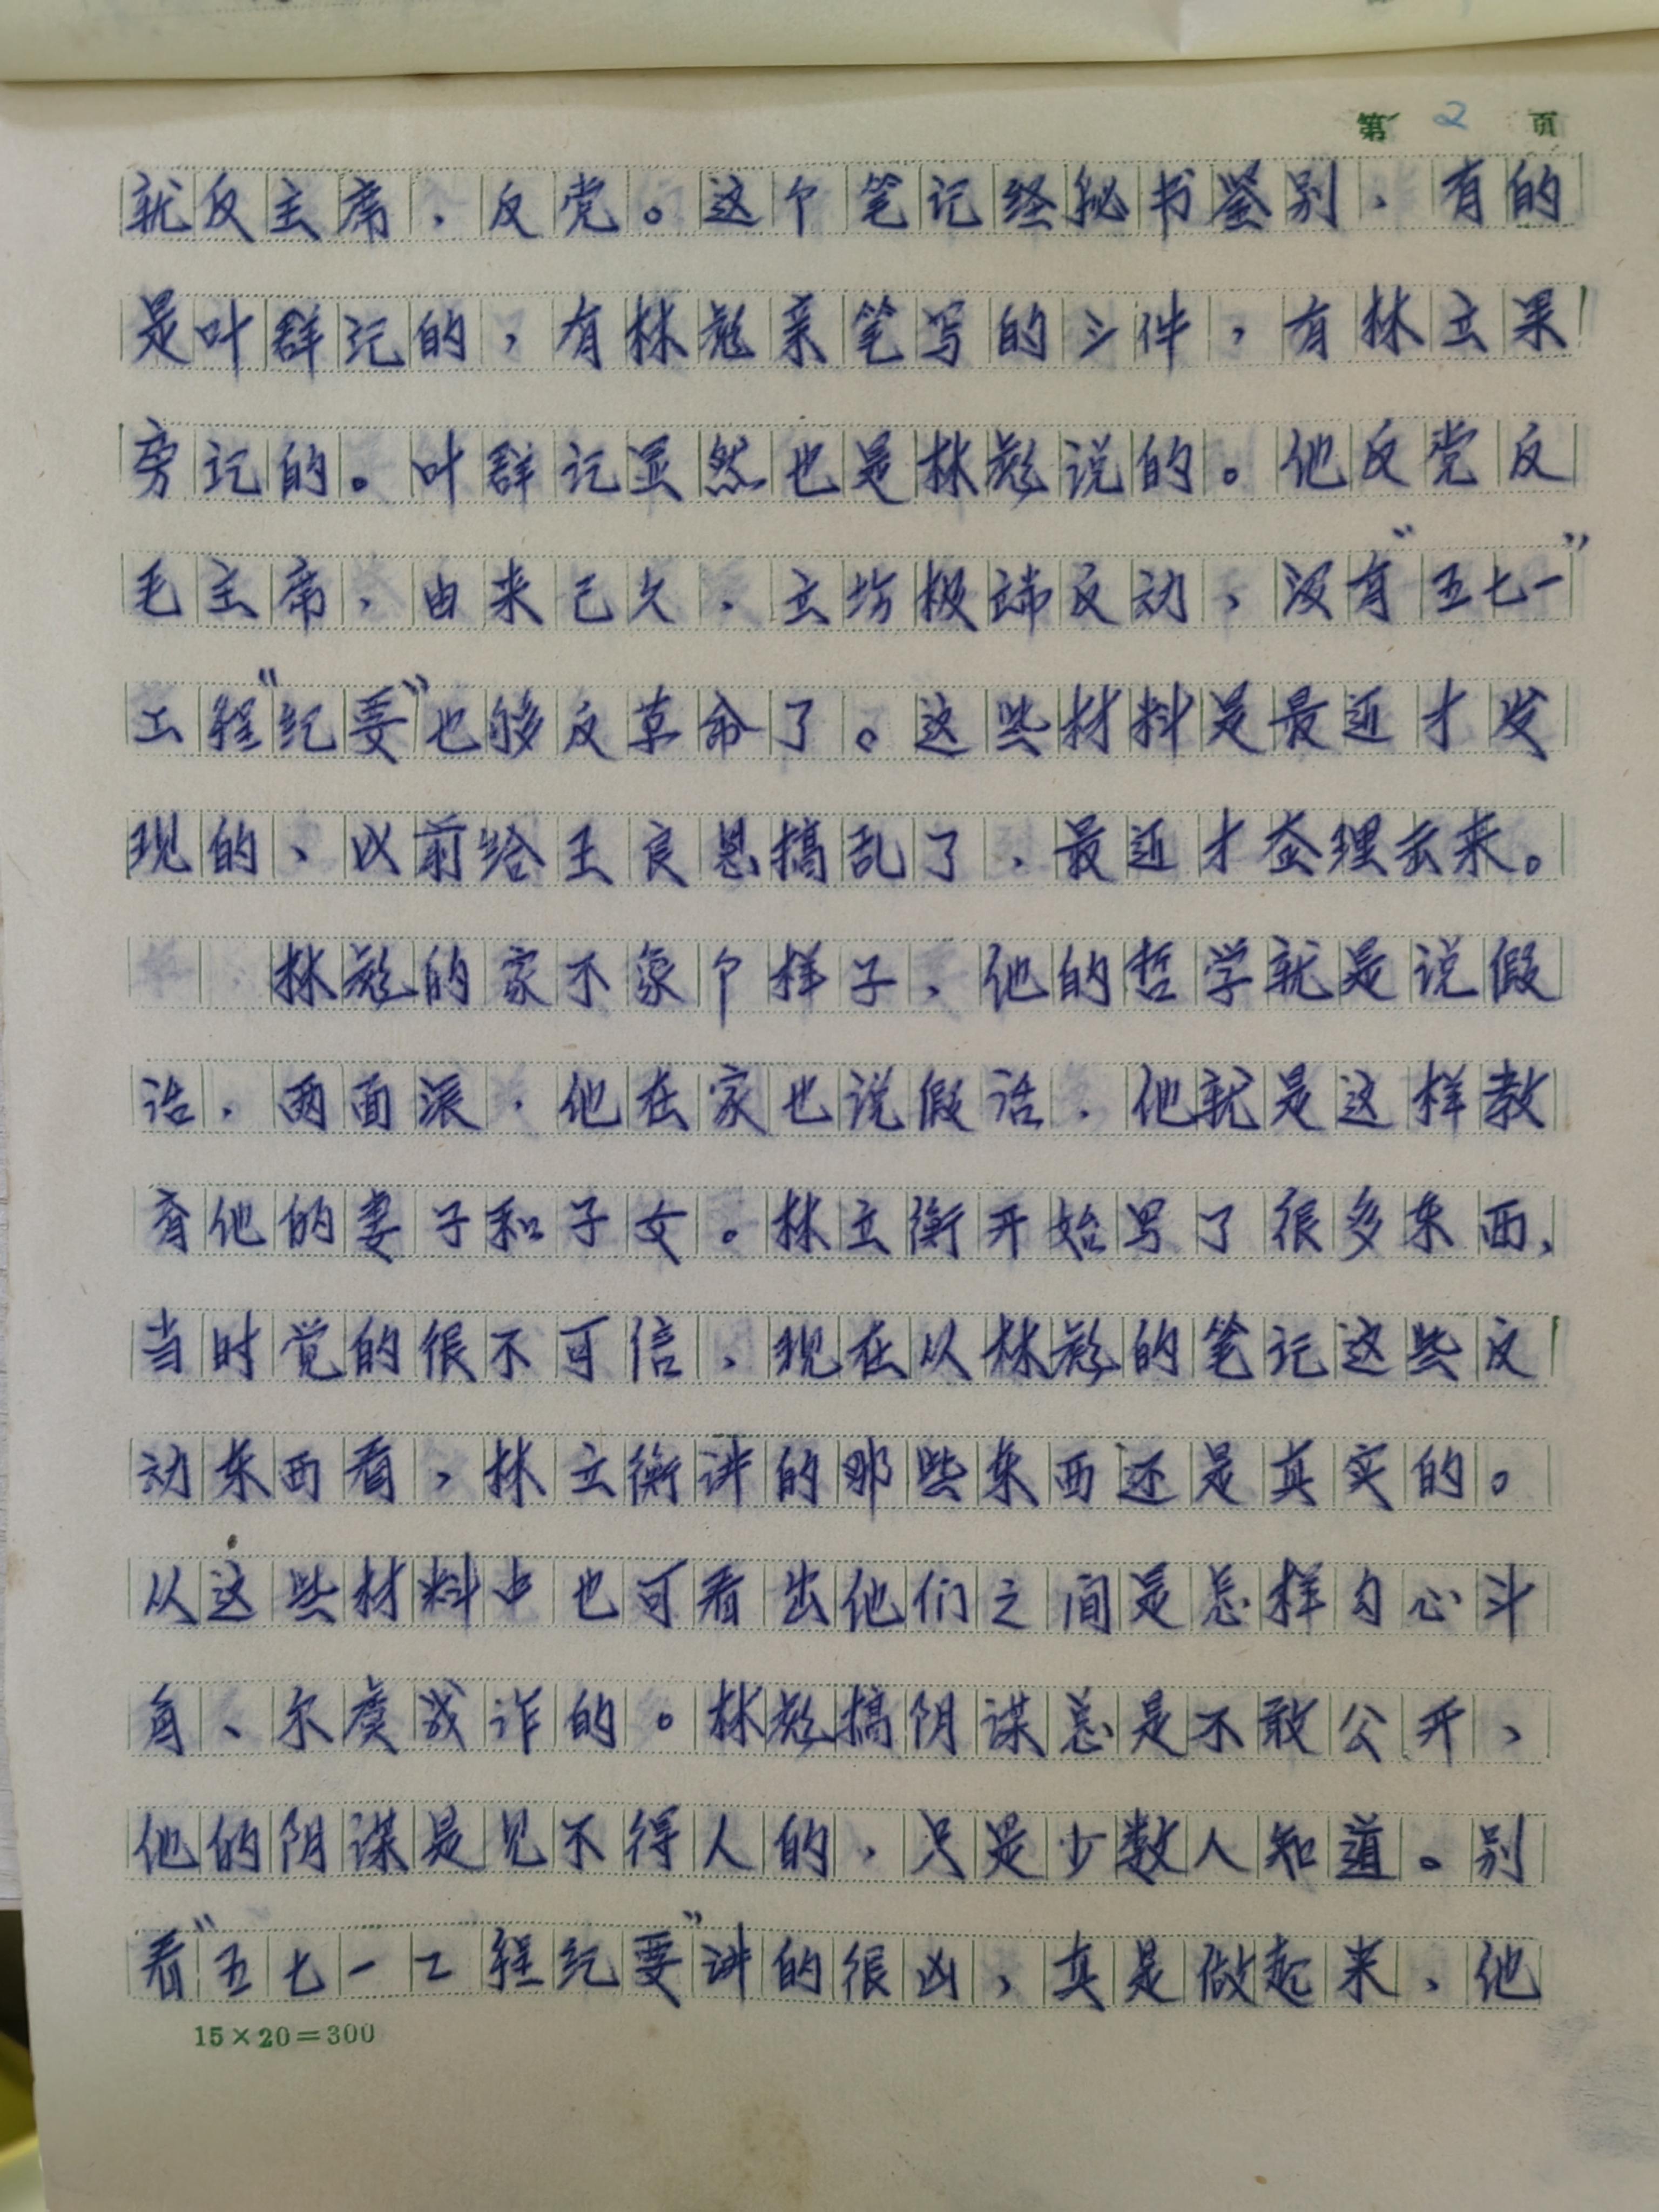 第2页
就反主席，反党。这个笔记经秘书鉴别，有的
是叶群记的，有林彪亲笔写的 件，有林立果
旁记的。叶群记显然也是林彪说的。他反党反
毛主席，由来已久，立场极端反动，没有“五七一”
工程“纪要”也够反革命了。这些材料是最近才发
现的、以前给王良恩搞乱了，最近才查理出来。
林彪的家不象个样子，他的哲学就是说假
话，两面派，他在家也说假话，他就是这样教
育他的妻子和子女。林立衡开始写了很多东西，
当时觉的很不可信，现在从林彪的笔记这些反
动东西看，林立衡讲的那些东西还是真实的。
从这些材料中也可看出他们之间是怎样勾心斗
角、尔虞我诈的。林彪搞阴谋总是不敢公开，
他的阴谋是见不得人的，只是少数人知道。别
看“五七一工程纪要”讲的很凶，真是做起来，他
15×20=300